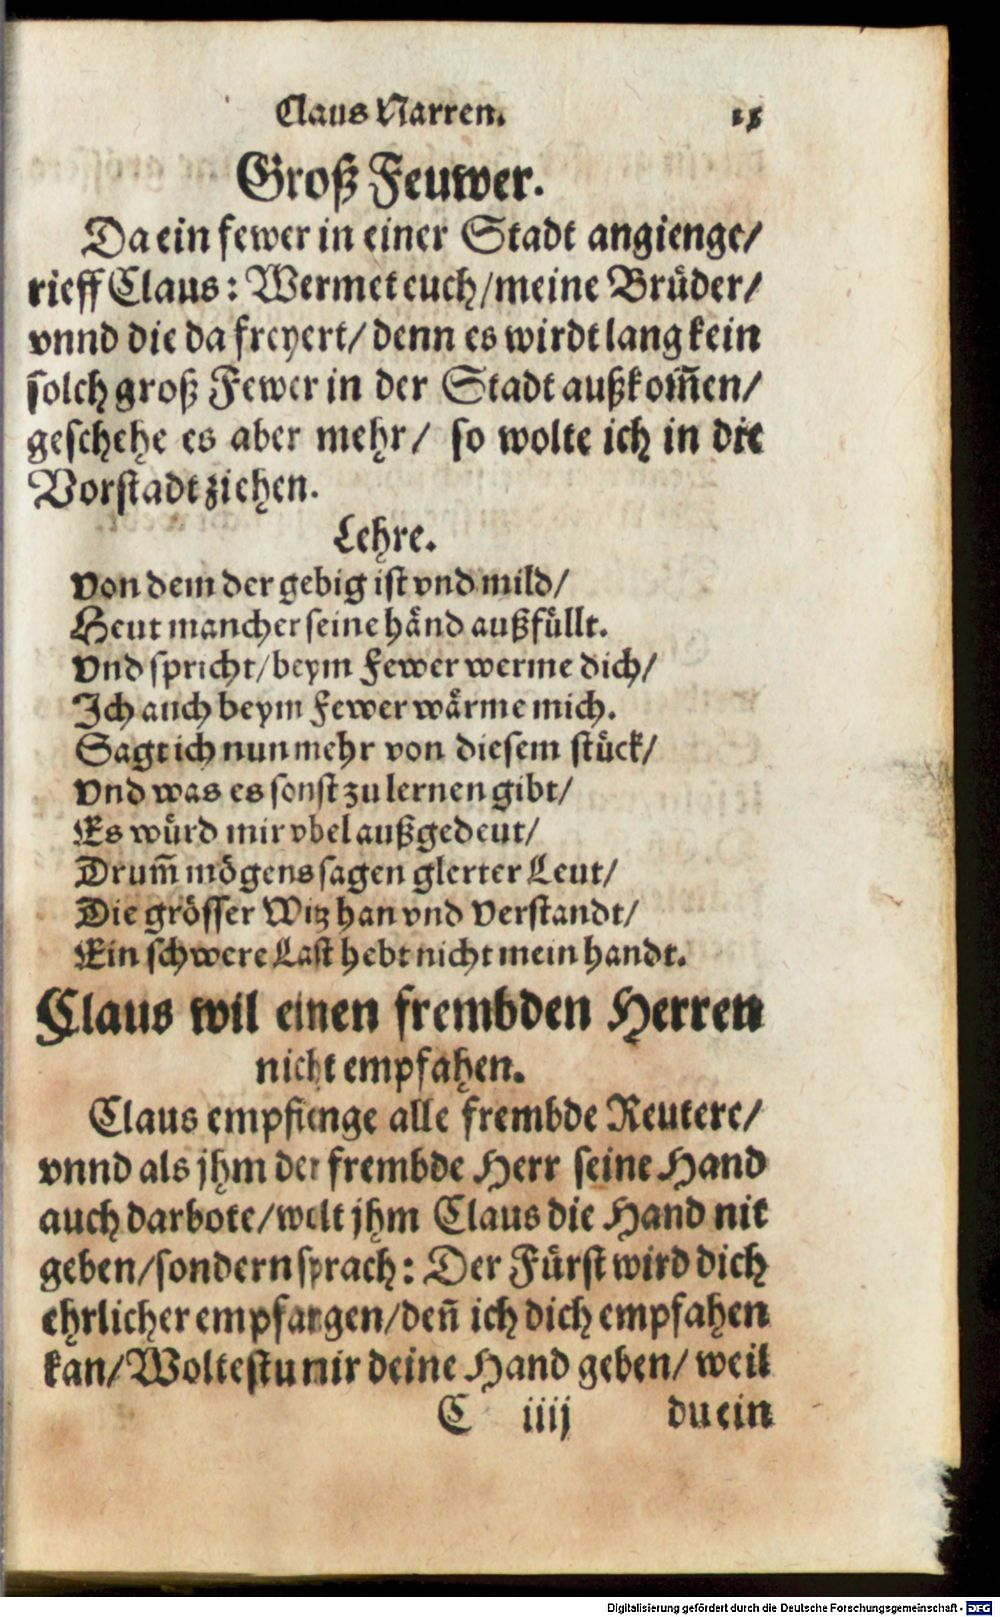 Claus Narren. 
Groß Feuwer.
Da ein fewer in einer Stadt angienge/
rieff Claus: Wermet euch/meine Brüder/
vnnd die da freyert/ denn es wirdt lang kein
solch groß Fewer in der Stadt außkom̃en/
geschehe es aber mehr/ so wolte ich in die
Vorstadt ziehen.
Lehre.
Von dem der gebig ist vnd mild/
Heut mancher seine händ außfüllt.
Vnd spricht/beym Fewer werme dich/
Ich auch beym Fewer wärme mich.
Sagt ich nun mehr von diesem stück/
Vnd was es sonst zu lernen gibt/
Es würd mir vbel außgedeut/
Drum̃ mögens sagen glerter Leut/
Die grösser Witz han vnd Verstandt/
Ein schwere Last hebt nicht mein handt.
Claus wil einen frembden Herren
nicht empfahen.
Claus empfienge alle frembde Reutere/
vnnd als jhm der frembde Herr seine Hand
auch darbote/wolt jhm Claus die Hand nit
geben/sondern sprach: Der Fürst wird dich
ehrlicher empfangen/den̄ ich dich empfahen
kan/Woltestu mir deine Hand geben/ weil
C iiij du ein
Digitalisierung gefördert durch die Deutsche Forschungsgemeinschaft - DFG